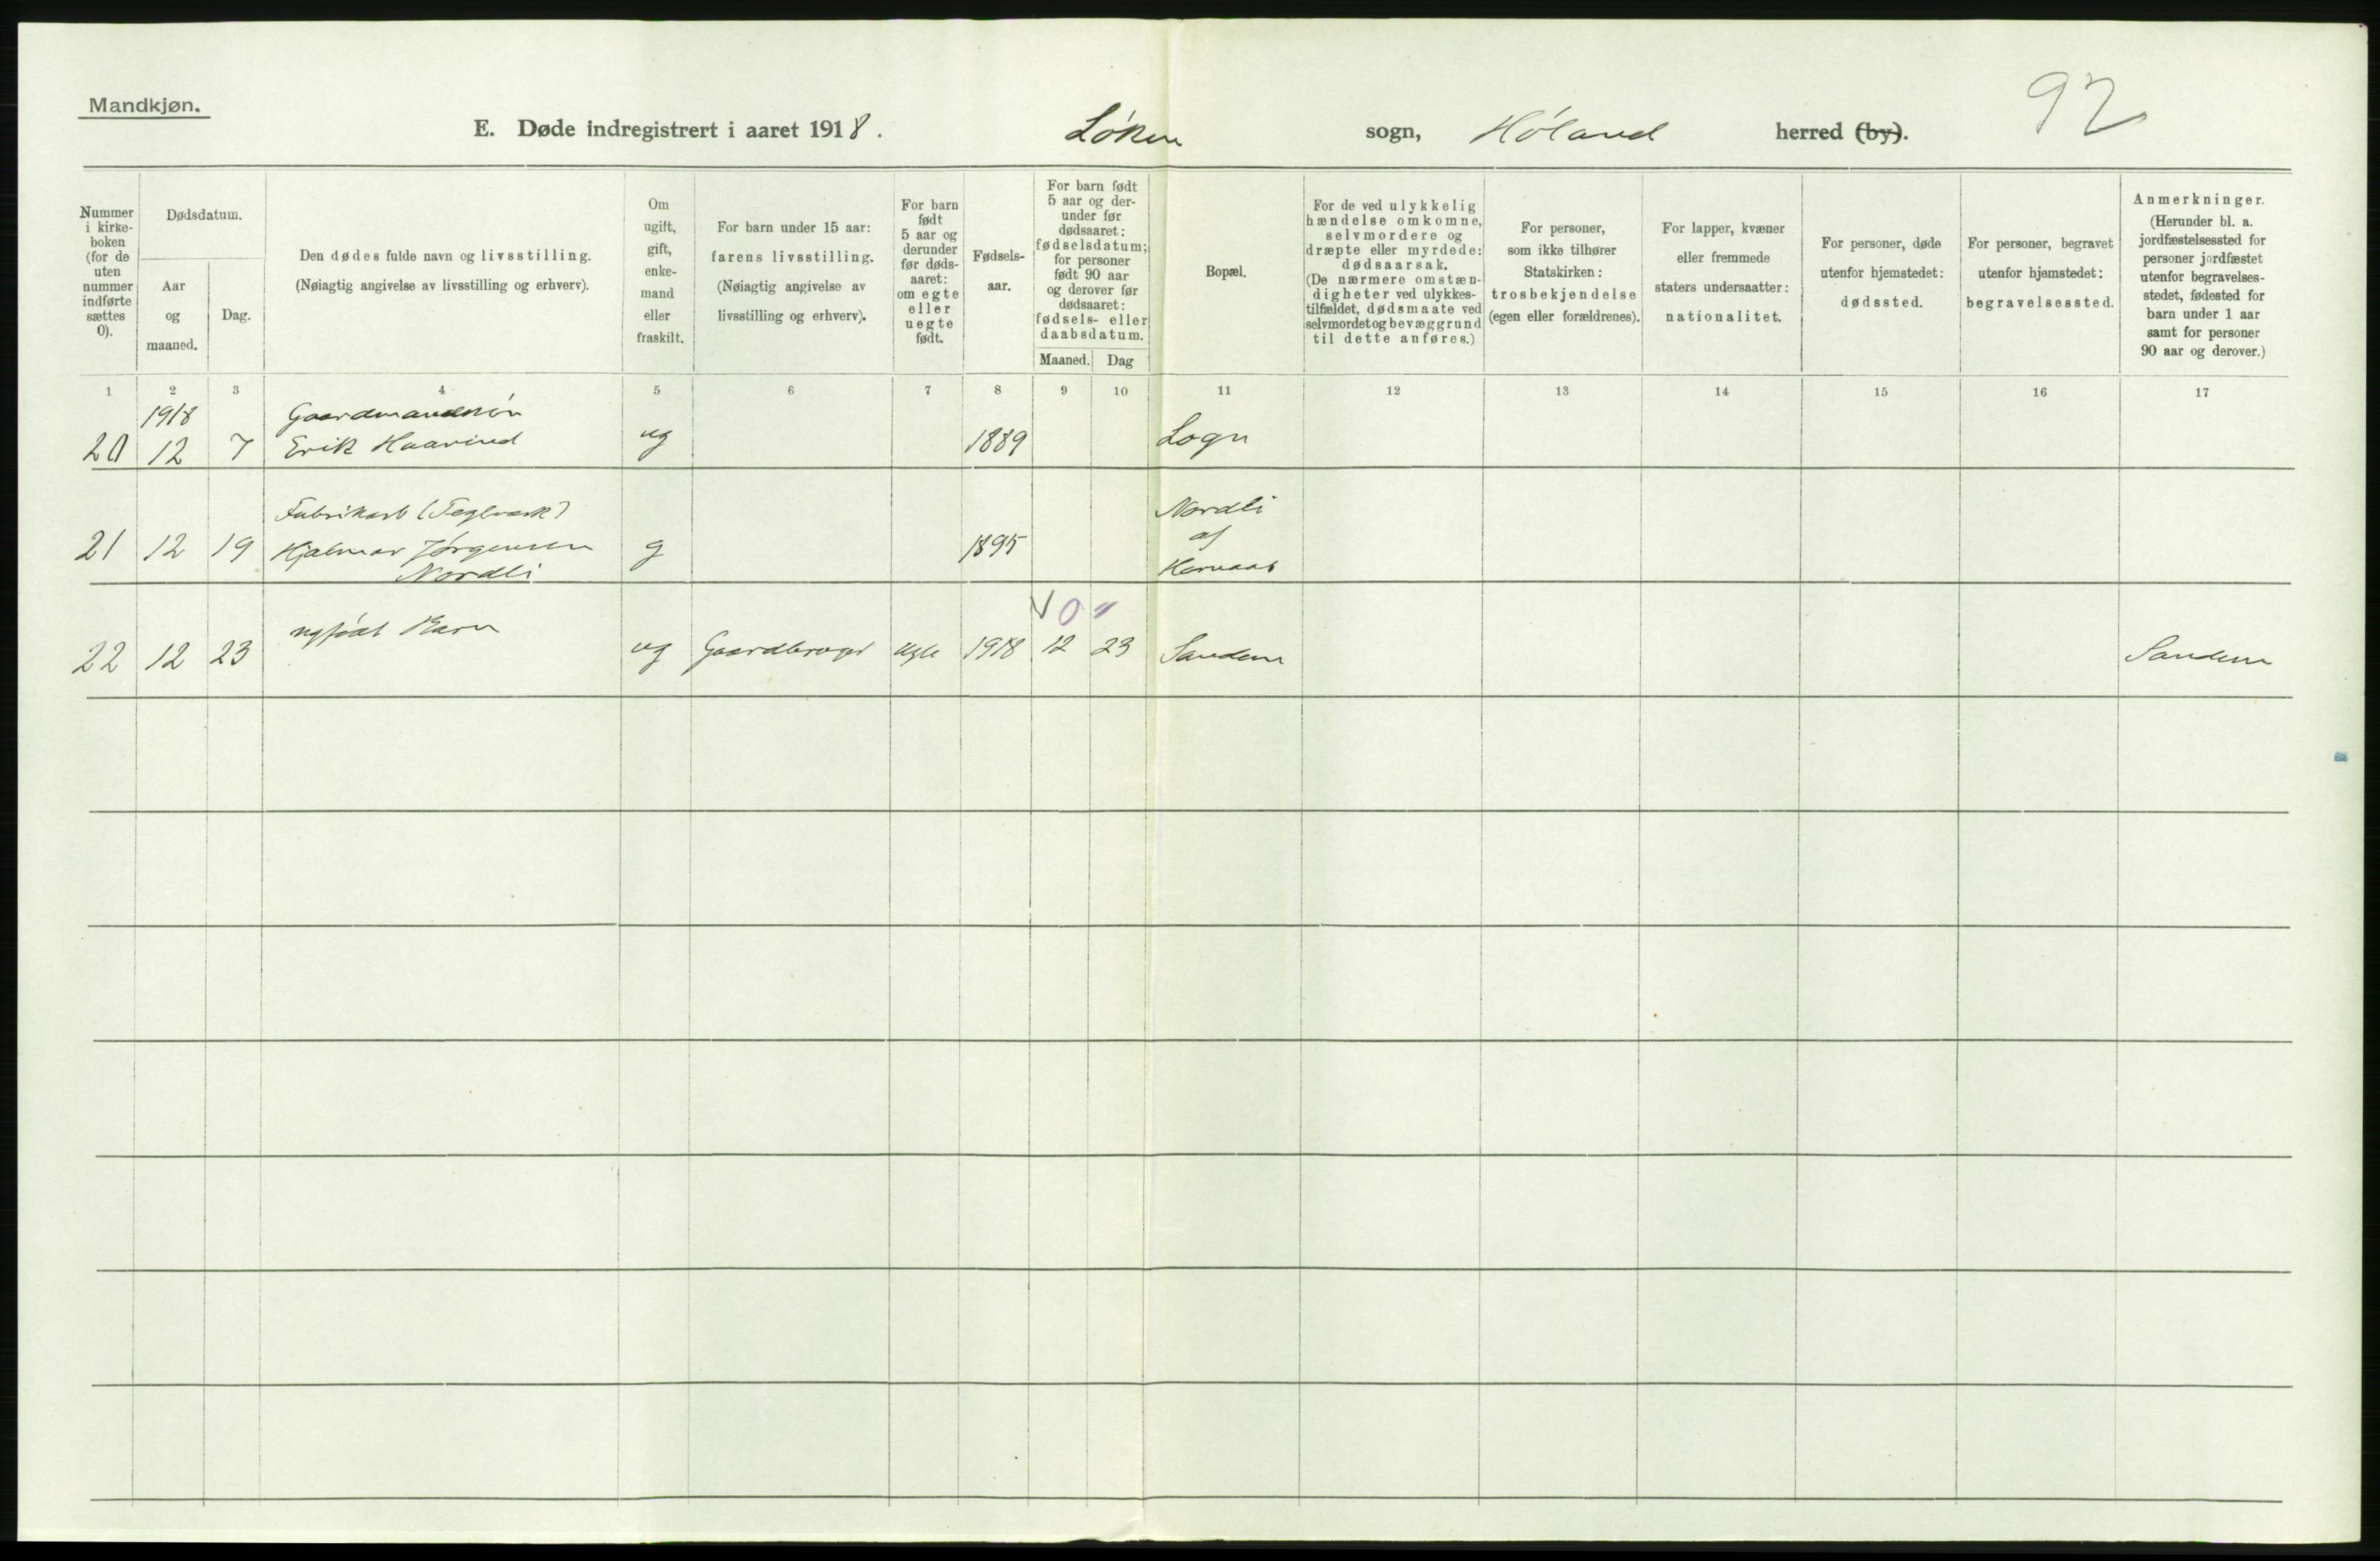 Mandkjøn.
92
E. Døde indregistrert i aaret 1918. Løken sogn, Høland herred (by).
Nummer i kirkeboken (for de uten nummer indførte sættes 0).
Dødsdatum.
Aar og maaned.
Dag.
Den dødes fulde navn og livsstilling.
(Nøiagtig angivelse av livsstilling og erhverv).
Om ugift, gift, enkemand eller fraskilt.
For barn under 15 aar: farens livsstilling.
(Nøiagtig angivelse av livsstilling og erhverv).
For barn født 5 aar og derunder før dødsaaret: om egte eller uegte født.
Fødselsaar.
For barn født 5 aar og derunder før dødsaaret: fødselsdatum; for personer født 90 aar og derover før dødsaaret: fødsels- eller daabsdatum.
Maaned. Dag
Bopæl.
For de ved ulykkelig hændelse omkomne, selvmordere og dræpte eller myrdede: dødsaarsak.
(De nærmere omstændigheter ved ulykkestilfældet, dødsmaate ved selvmordet og bevæggrund til dette anføres.)
For personer, som ikke tilhører Statskirken: trosbekjendelse (egen eller forældrenes).
For lapper, kvæner eller fremmede staters undersaatter: nationalitet.
For personer, døde utenfor hjemstedet: dødssted.
For personer, begravet utenfor hjemstedet: begravelsessted.
Anmerkninger.
(Herunder bl. a. jordfæstelsessted for personer jordfæstet utenfor begravelsesstedet, fødested for barn under 1 aar samt for personer 90 aar og derover.)
1 2 3 4 5 6 7 8 9 10 11 12 13 14 15 16 17
1918 Gaardmandssøn
20 12 7 Erik Haarind ug 1889 Logn
Fabrikarb (Teglværk) Nordli
21 12 19 Hjalmar Jørgensen g 1895 af
Nordli
0 "
ugfødt Barn
22 12 23 ug Gaardbruger 1918 12 23 Sandem Sandem